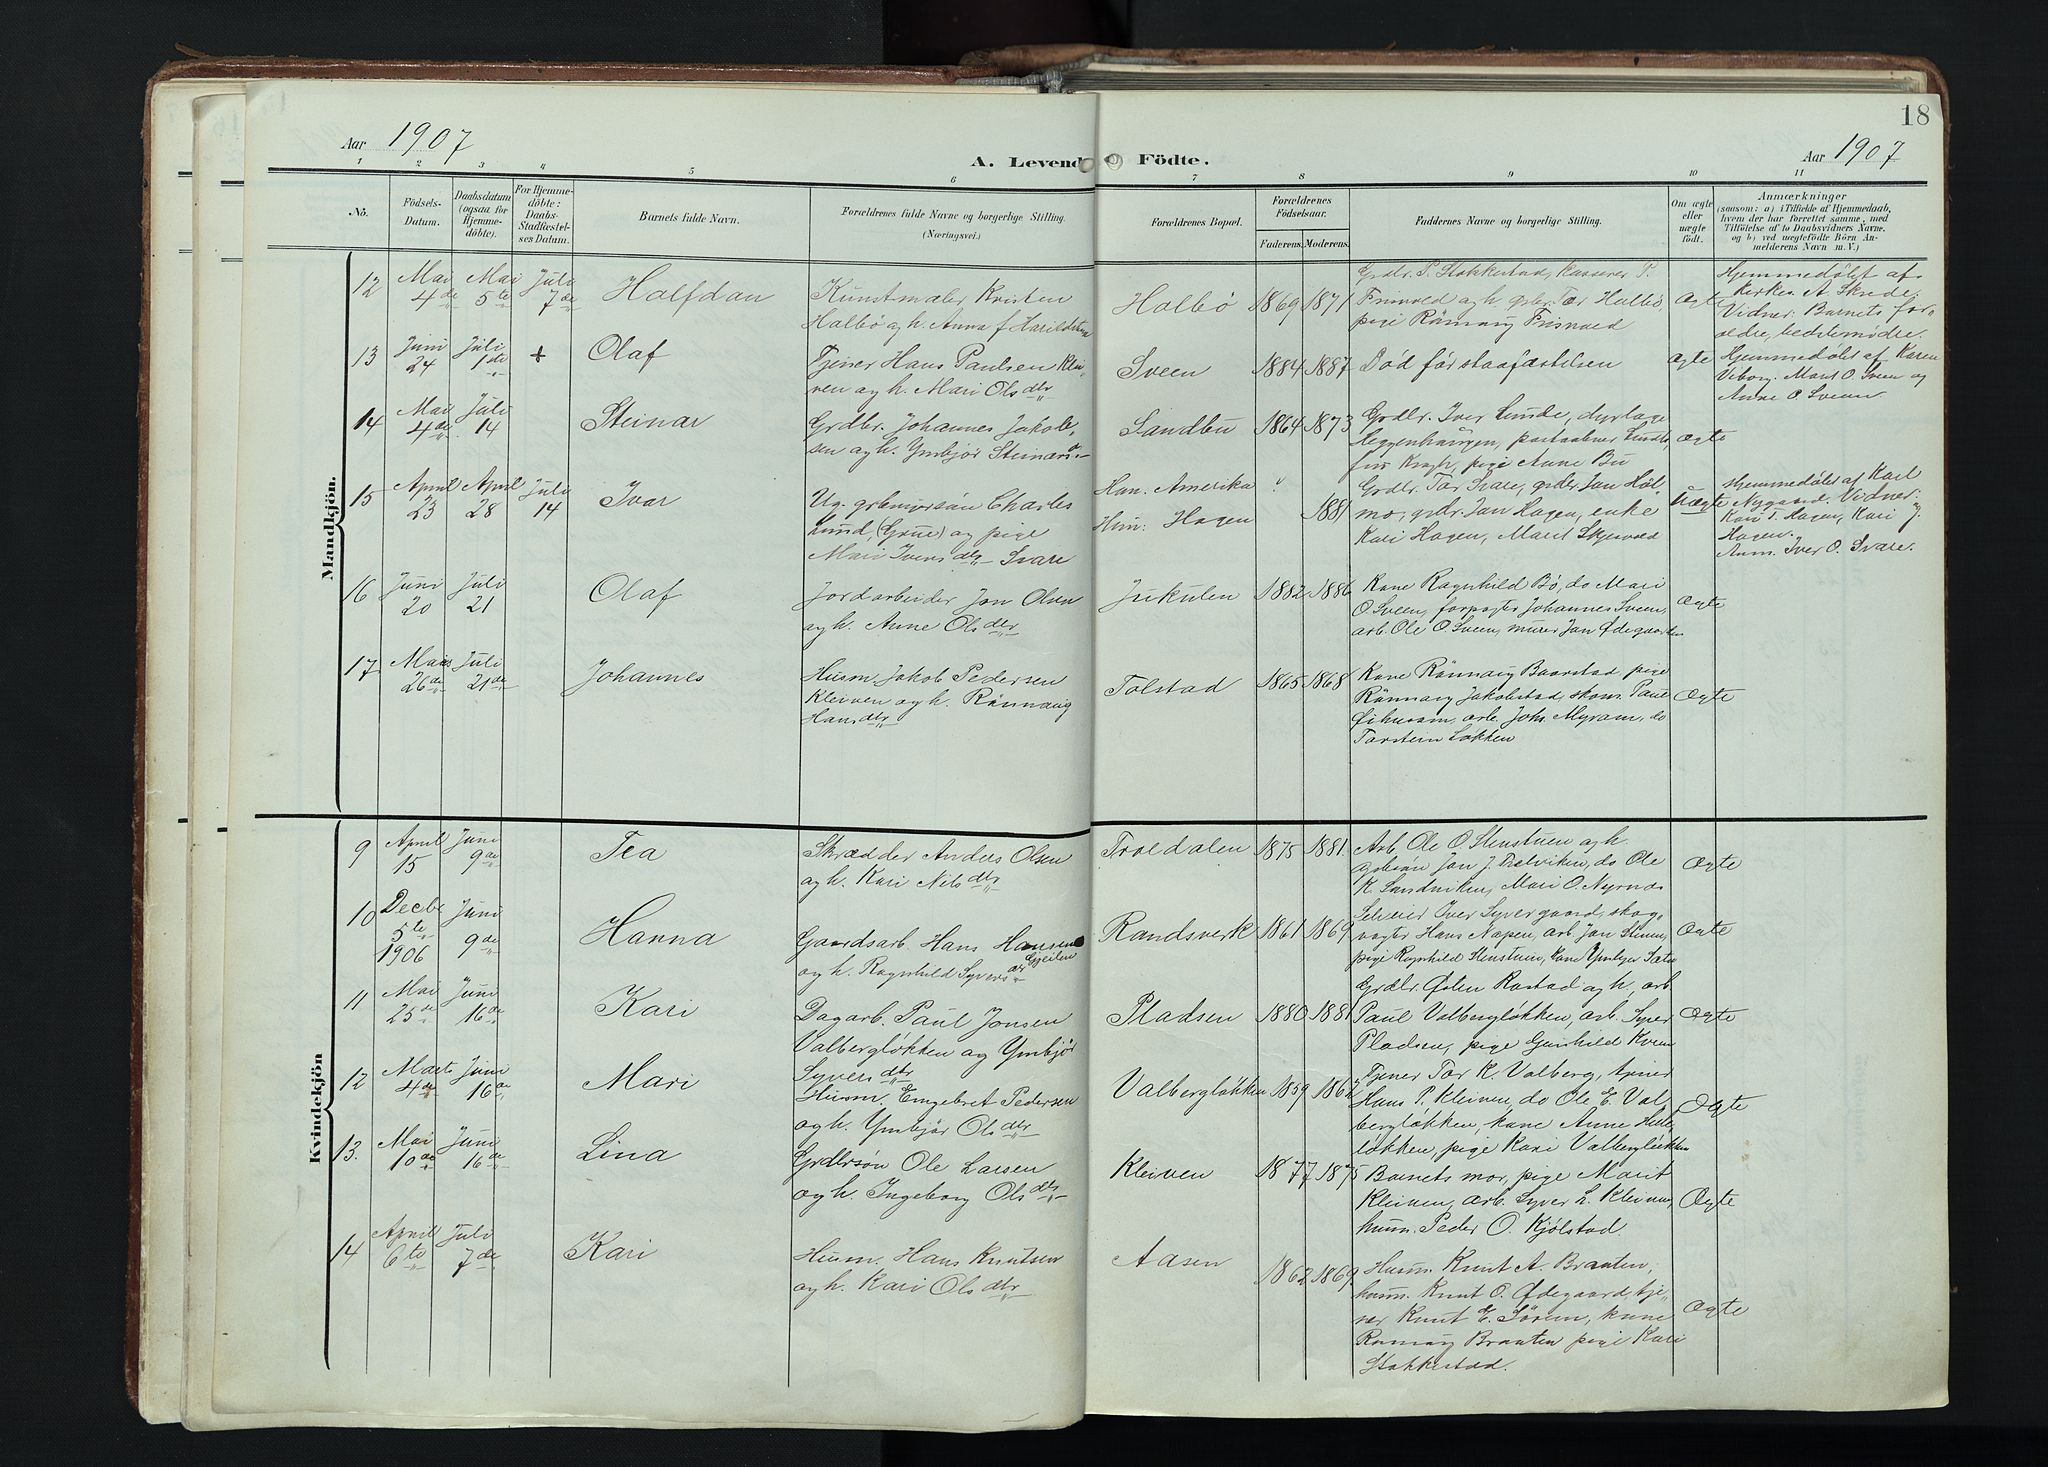 18
Aar 1907
A. Levende Födte.
Aar 1907
1 2 3 4 5 6 7 8 9 10 11
No.
Födsels-
Datum.
Daabsdatum
(ogsaa for
Hjemme-
döbte).
For Hjemme-
döbte:
Daabs-
Stadfæstel-
ses Datum.
Barnets fulde Navn.
Forældrenes fulde Navne og borgerlige Stilling.
(Næringsvei.)
Forældrenes Bopæl.
Forældrenes
Födselsaar.
Faderens. Moderens.
Faddernes Navne og borgerlige Stilling.
Om ægte
eller
uægte
født.
Anmærkninger
(saasom: a) i Tilfælde af Hjemmedaab,
hvem der har forrettet samme, med
Tilföielse af to Daabsvidners Navne.
og b) ved uægtefödte Börn An-
melderens Navn m. V.)
Mandkjön.
12
Mai
4de
Mai
5te
Juli
7de
Halfdan
Kunstmaler Kristen
Halbö og h. Anna f Harildstad
Halbö
1869 1871
Grdbr. P. Stokkestad, kasserer P.
Frisvold og h. grbr. Tor Halbö,
pige Rönnaug Frisvold
Ægte
Hjemmedøbt af
kirkes. A. Skrede.
Vidner: Barnets for-
ældre, bedstemødre.
13
Juni
24
Juli
1ste
+
Olaf
Tjener Hans Paulsen Klei-
ven og h. Mari Olsdtr
Sveen
1884 1887
Død før stadfæstelsen
Ægte
Hjemmedøbt af Karen
Viborg. Marit O. Sveen og
Anne O. Sveen
14
Mai
4de
Juli
14
Steinar
Grdbr. Johannes Jakob-
sen og h. Ymbjör Steinarsd.
Sandbu
1864 1873
Grdbr. Iver Lunde, dyrlæge
Leggenhaugen,
pige Anne Bu
Ægte
15
April
23
April
28
Juli
14
Ivar
Ug. Charles
Lund, (Grue) og pige
Mari Iversdtr Svare
Han. Amerika
Hun: Hagen
1881
Grdbr. Tor Svare, grdbr. Jan Hol-
mo, grdbr. Jan Hagen, enke
Kari Hagen, Marit Skjervold
Uægte
Hjemmedøbt af Karl
Nygaard. Vidner:
Kari T. Hagen, Kari J.
Hagen.
Anm. Iver O. Svare.
16
Juni
20
Juli
21
Olaf
Jordarbeider Jon Olsen
og h. Anne Olsdtr
Jukulen
1882 1886
Kone Ragnhild Bö, do Mari
O. Sveen, forpagter Johannes Sveen,
arb. Ole O. Sveen, murer Jan Ødegaarden
Ægte
17
Mai
26de
Juli
21de
Johannes
Husm. Jakob Pedersen
Kleiven og h. Rönnaug
Hansdtr
Tolstad
1865 1868
Kone Rönnaug Baarstad pige
Rönnaug Jakobstad, skom. Paul
arb. Joh. Myrom, do
Torstein Løkken
Ægte
Kvindekjön
9
April
15
Juni
9de
Tea
Skrædder Anders Olsen
og h. Kari Nilsdtr
Troldalen
1875 1881
Arb. Ole O. Stenstuen og h.
Jan J. Tretviken, do Ole
K. Sandviken, Mari O. Nyrnæs
Ægte
10
Decbr
5te
1906
Juni
9de
Hanna
Gaardsarb. Hans Hansen
Gjeilen
og h. Ragnhild Syversdtr
Randsverk
1861 1869
Selveier Iver Syvergaard, skog-
vogter Hans Nöpen, arb. Jan Stenen,
pige Ragnhild Stenstuen, kone Ymbjør Sætre
Ægte
11
Mai
25de
Juni
16de
Kari
Dagarb. Paul Jonsen
Valbergløkken og Ymbjör
Syversdtr
Pladsen
1880 1881
Grdbr. Østen Rustad og h., arb
Paul Valbergløkken, arb. Syver
Pladsen, pige Gunhild Kveen
Ægte
12
Marts
4de
Juni
16de
Mari
Husm. Engebret Pedersen
og h. Ymbjör Olsdtr
Valbergløkken
1859 1862
Tjener Tor K. Valberg, tjener
Hans P. Kleiven, do Ole E. Val-
bergløkken, kone Anne
løkken, pige Kari Valbergløkken
Ægte
13.
Mai
10de
Juni
16de
Lina
Grdbrsøn Ole Larsen
og h. Ingeborg Olsdtr
Kleiven
1877 1875
Barnets mor, pige Marit
Kleiven, arb. Syver L. Kleiven,
husm. Peder O. Kjölstad.
Ægte
14
April
6te
Juli
7de
Kari
Husm. Hans Knutsen
og h. Kari Olsdtr
Aasen
1862 1869
Husm. Knut A. Braaten,
husm. Knut O. Ødegaard, tje-
ner Knut E. Söreen, kone
Rönnaug Braaten pige Kari
Stokkestad.
Ægte